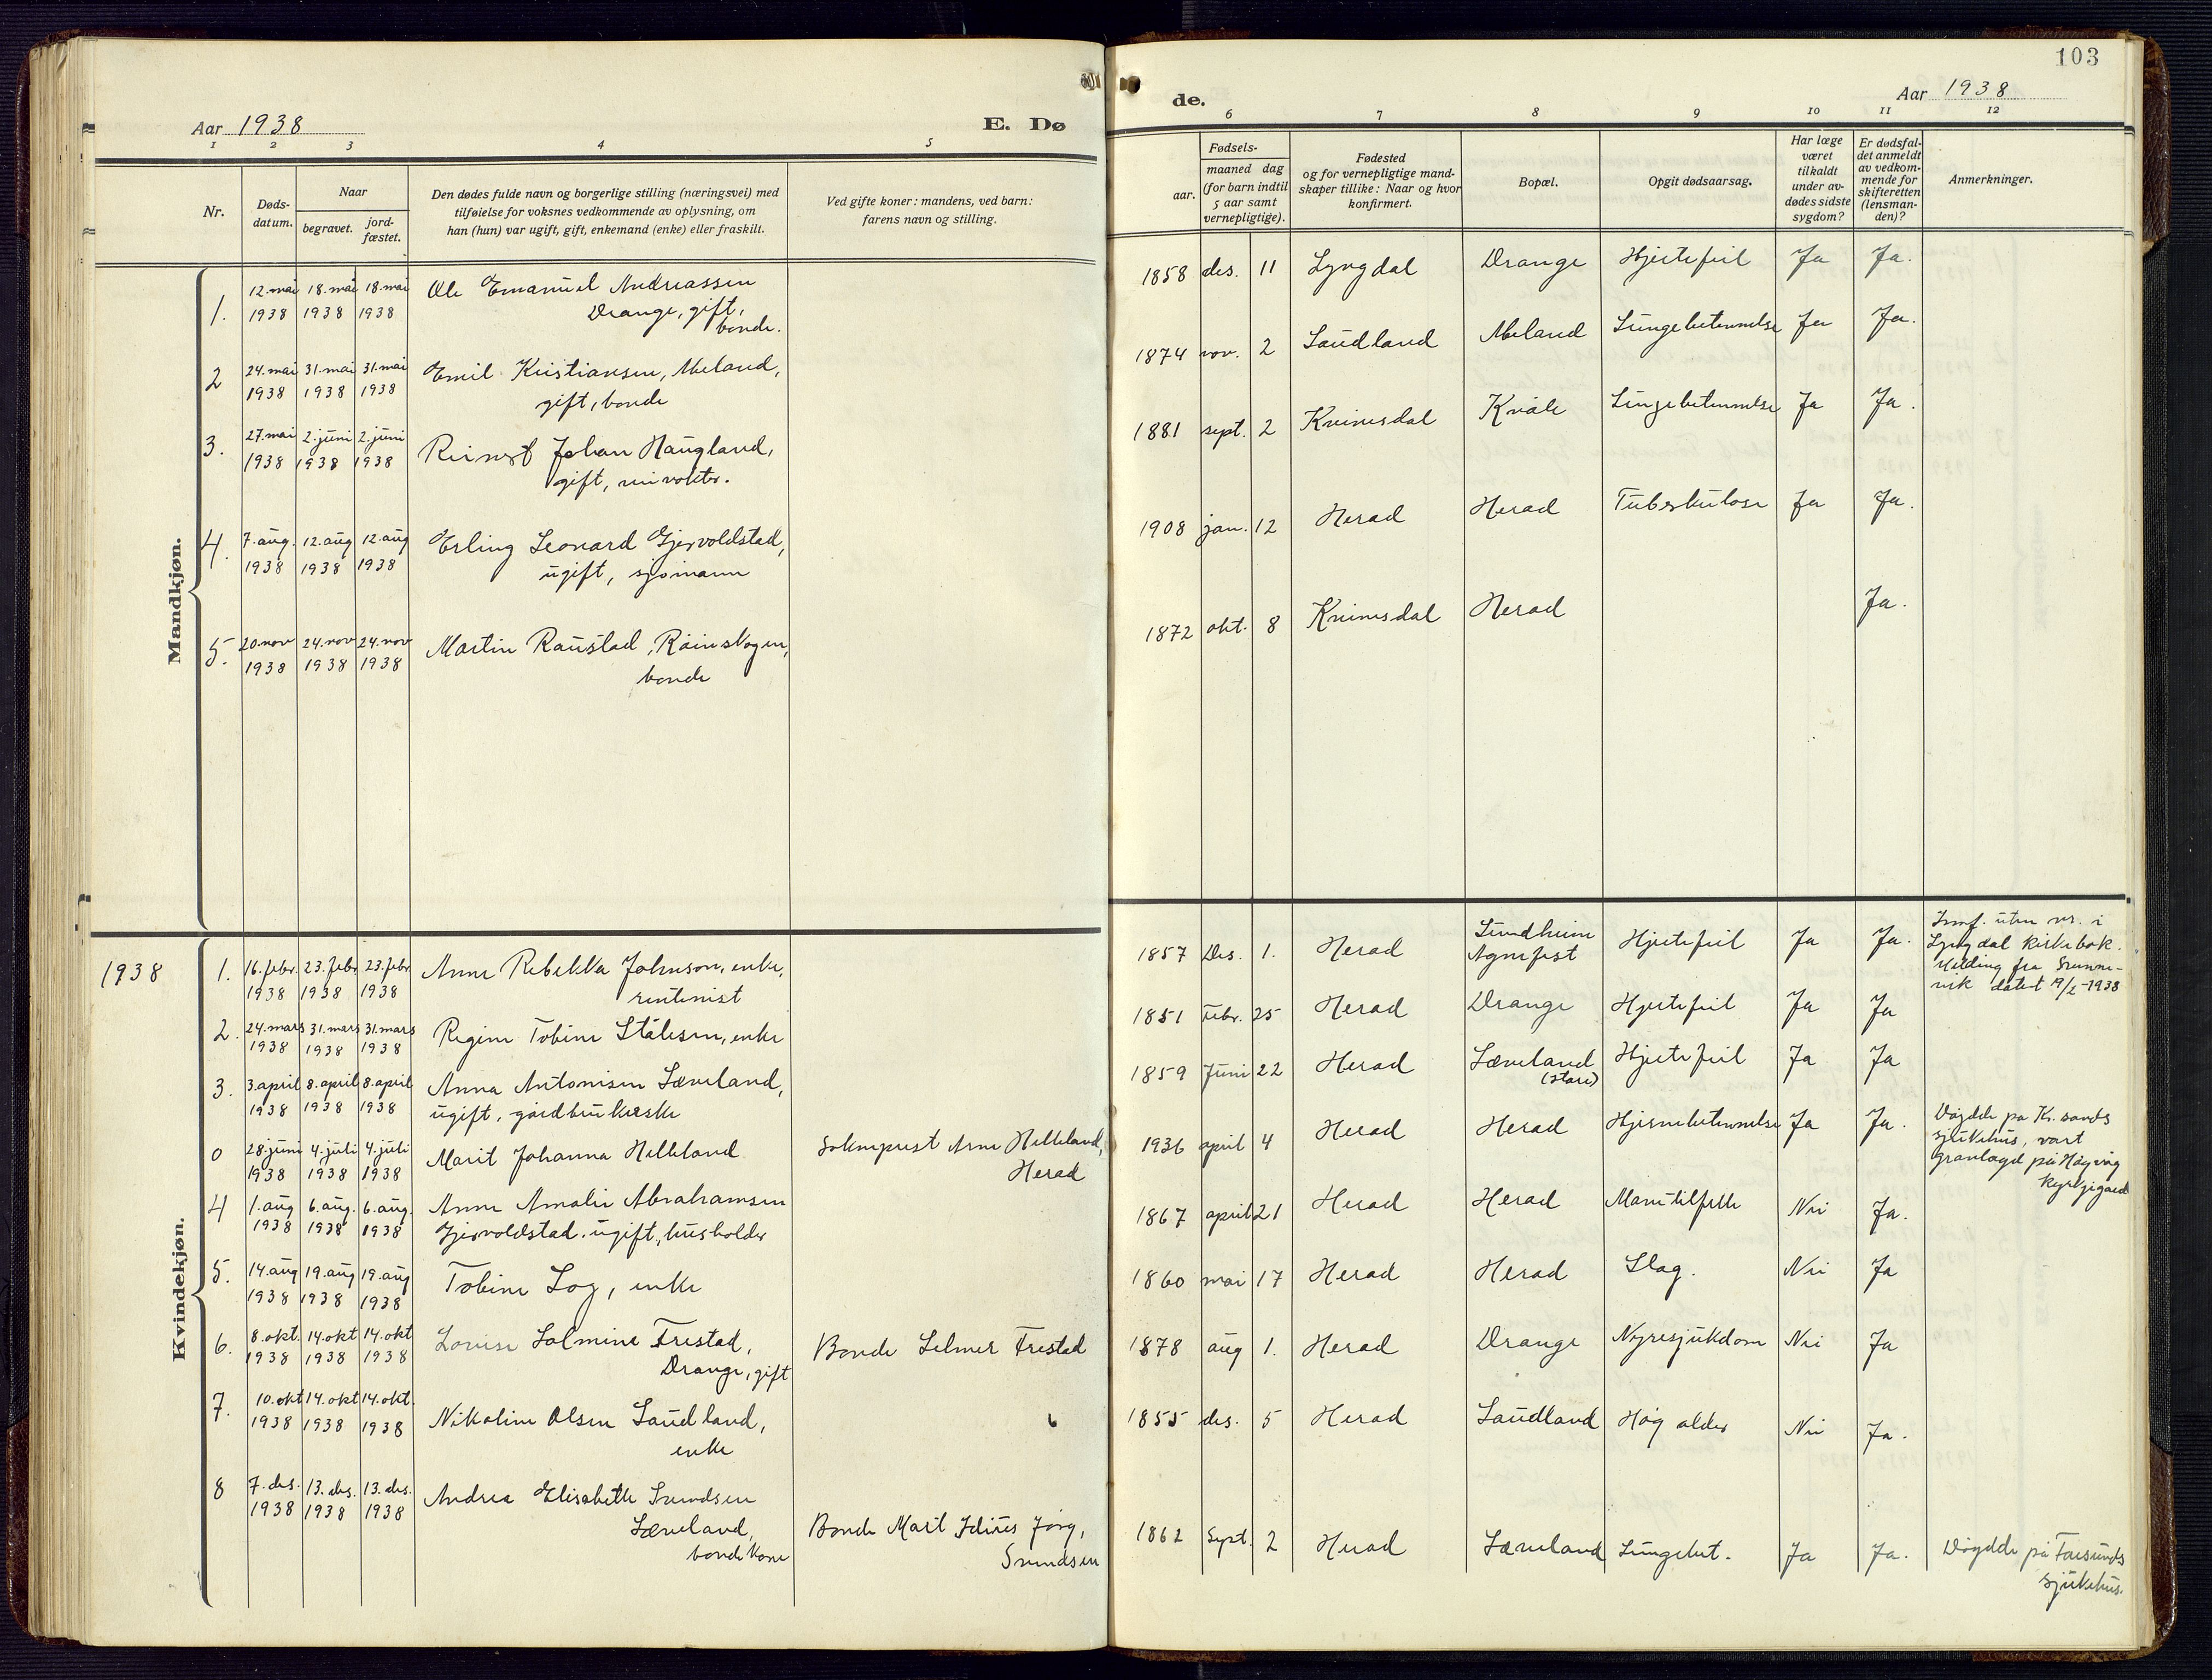 Aar 1938
E. Dø
1 2 3 4 5
Nr.
Døds-
datum.
Naar
begravet.
jord-
fæstet.
Den dødes fulde navn og borgerlige stilling (næringsvei) med
tilføielse for voksnes vedkommende av oplysning, om
han (hun) var ugift, gift, enkemand (enke) eller fraskilt.
Ved gifte koner: mandens, ved barn:
farens navn og stilling.
Mandkjøn.
1. 12. mai 18. mai 18. mai Ole Emanuel Andreassen
1938 1938 1938 Drange, gift,
bonde.
2 24. mai 31. mai 31. mai Emil Kristiansen, Meland,
1938 1938 1938 gift, bonde
3. 27. mai 2. juni 2. juni Reinert Johan Haugland,
1938 1938 1938 gift,
4. 7. aug. 12. aug 12. aug Erling Leonard Gjervoldstad,
1938 1938 1938 ugift, sjømann
5. 20. nov 24. nov 24. nov Martin Raustad, Røinskogen,
1938 1938 1938 bonde
Kvindekjøn.
1938 1. 16. febr. 23. febr 23. febr. Anne Rebekka Johnson, enke,
1938 1938 1938 rentenist
2. 24. mars 31. mars 31. mars Regine Tobine Stålesen, enke
1938 1938 1938
3. 3. april 8. april 8. april Anna Antonisen Læveland,
1938 1938 1938 ugift, gårdbrukerske
0 28. juni 4. juli 4. juli Marit Johanna Helleland Sokneprest Arne Helleland,
1938 1938 1938 Herad
4 1. aug 6. aug. 6. aug. Anne Amalie Abrahamsen
1938 1938 1938 Gjervoldstad, ugift, husholder
5. 14. aug 19. aug 19. aug Tobine Log, enke
1938 1938 1938
6. 8. okt. 14. okt 14. okt Lovise Salmine Frestad, Bonde Selmer Frestad
1938 1938 1938 Drange, gift
7. 10. okt 14. okt 14. okt. Nikoline Olsen Saudland,
1938 1938 1938 enke
8 7. des. 13. des. 13. des. Andrea Elisabeth Svendsen
1938 1938 1938 Læveland, Bonde Mart Idius Jørg,
bondekone Svendsen
103
de.
Aar 1938
6 7 8 9 10 11 12
aar.
Fødsels-
maaned dag
(for barn indtil
5 aar samt
vernepligtige).
Fødested
og for vernepligtige mand-
skaper tillike: Naar og hvor
konfirmert.
Bopæl.
Opgit dødsaarsag.
Har læge
været
tilkaldt
under av-
dødes sidste
sygdom?
Er dødsfal-
det anmeldt
av vedkom-
mende for
skifteretten
(lensman-
den)?
Anmerkninger.
1858 des. 11 Lyngdal Drange Hjertefeil Ja Ja.
1874 nov. 2 Saudland Meland Lungebetennelse Ja Ja.
1881 sept. 2 Kvinesdal Kvåle Lungebetennelse Ja Ja.
1908 jan. 12 Herad Herad Tuberkulose Ja Ja.
1872 okt. 8 Kvinesdal Herad Ja.
1857 Des. 1. Herad Sundheim
Agnefest Hjertefeil Ja Ja. Innf. uten nr. i
Lyngdal kirkebok.
Melding fra Grunne-
vik datert 19/2-1938
1851 febr. 25 Herad Drange Hjertefeil Ja Ja
1859 Juni 22 Herad Læveland
(Store) Hjertefeil Ja Ja
1936 april 4 Herad Herad Hjernebetennelse Ja Ja. Døydde på Kr.sands
sjukehus, vart
gravlagd på Høgvåg
kyrkjegard
1867 april 21 Herad Herad Mavetilfelle Nei Ja.
1860 mai 17 Herad Herad Slag. Nei Ja
1878 aug 1. Herad Drange Nyresjukdom Nei Ja
1855 des. 5 Herad Saudland Høg alder Nei Ja.
1862 Sept. 2 Herad Læveland Lungebet. Ja Ja. Døydde på Farsunds
sjukehus.